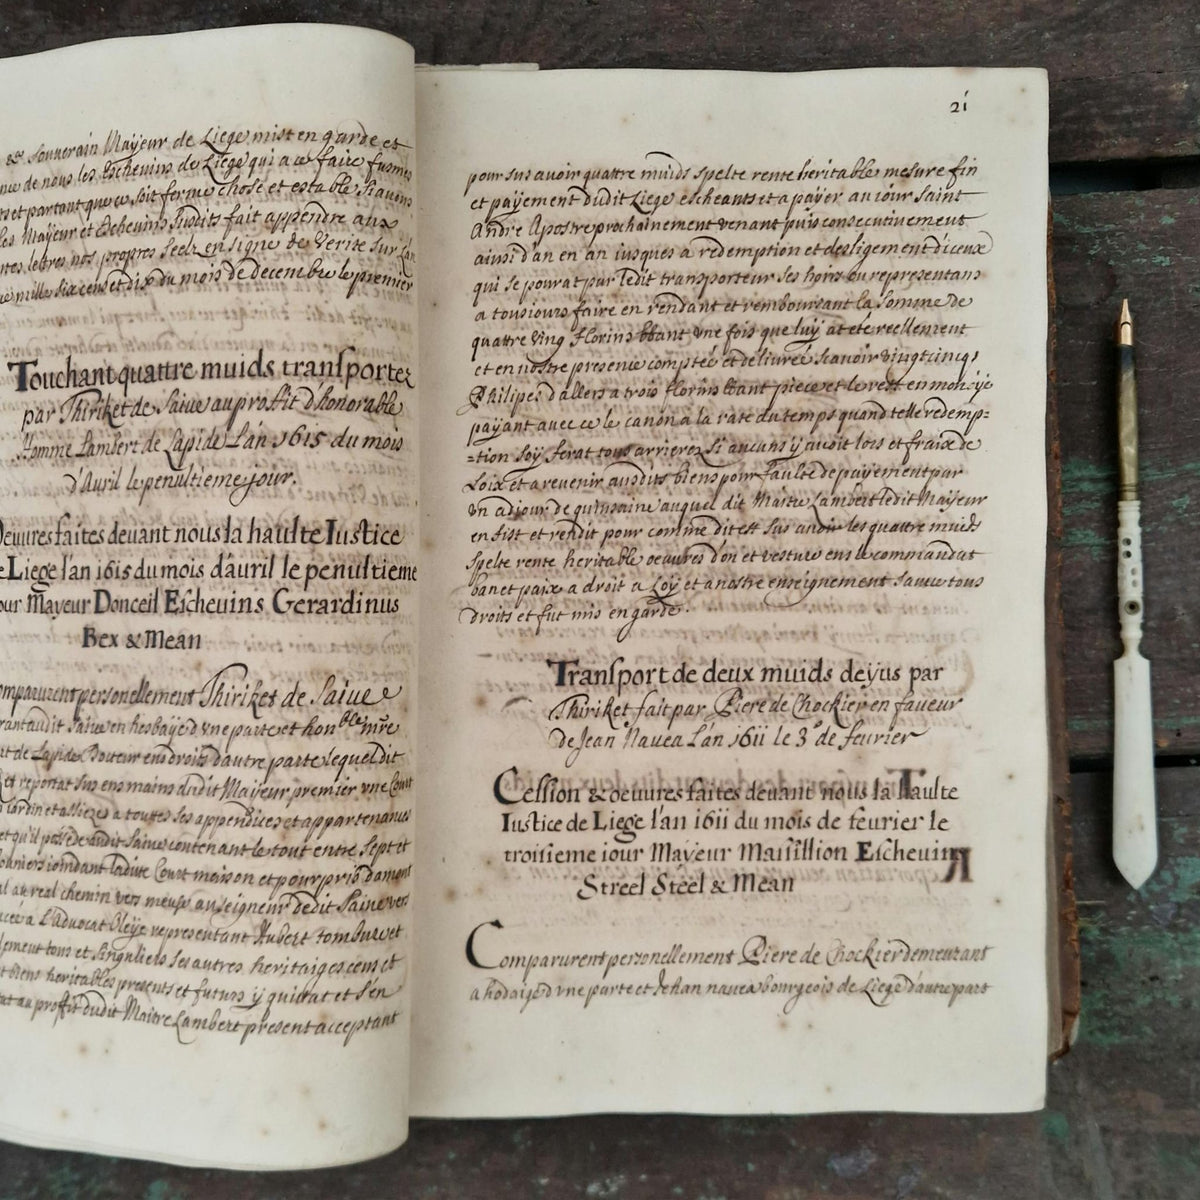 & Souverain Mayeur de Liege mist en garde et
de nous les Eschevins de Liege qui a ce faire fusmes
et partant que ce soit ferme chose et estable
les Mayeur et Eschevins susdits fait appendre aux
lettres nos propres Seelz en signe de Verite Sur Lan
mille Six cens et dix du mois de decembre le premier
Touchant quattre muids transportez
par Thiriket de Saive au proffit d'honorable
Homme Lambert de Lapide L'an 1615 du mois
d'Auril le penultieme jour.
Oeuures faites deuant nous la haulte Iustice
Liege l'an 1615 du mois d'auril le penultieme
Mayeur Donceil Escheuins Gerardinus
Rex & Mean
personellement Thiriket de Saiue
Saiue en hesbaye d'vne parte et honble mre
de Lapide Docteur en droits d'autre parte lequel dit
et reportat sus en mains dudit Mayeur premier vne Court
Jardin et assieze a toutes ses appendices et appartenances
et qu'il possede audit Saiue contenant le tout entre Sept et
joindant ladite Court maison et pourpris d'amont
al au real chemin vers meuse au seigneur dedit Saiue vers
a L'Aduocat Bleye representant Hubert tombeur et
tous et singuliers ses autres heritaiges cens et
biens heritables presents et futurs y quittat et s'en
au proffit dudit Maitre Lambert present acceptant
21
pour sus avoir quattre muids spelte rente heritable mesure fin
et payement dudit Liege escheants et a payer au jour saint
Andre Apostre prochainement venant puis consecutivement
ainsi d'an en an iusques a redemption et desligement d'iceux
qui se pourat par ledit transporteur ses hoirs ou representans
a tousiours faire en rendant et remboursant la Somme de
quattre ving florins bbant vne fois que luy at ete reellement
et en nostre presence comptée et deliuree Scauoir vingtcinq
Philipes dallers a trois florins bbant piece et le rest en monoye
payant auec ce le canon a la rate du temps quand telle redemp=
=tion Soy ferat tous arrierez Si aucuns y auoit lors et fraix de
Loix et a revenir ausdits biens pour faulte de payement par
vn adjour de quinsaine auquel dit Maitre Lambert ledit Mayeur
en fist et rendit pour comme dit est sus auoir les quattre muids
spelte rente heritable oeuures d'on et vesture ens le commandat
ban et paix a droit a Loy et a nostre enseignement sauue tous
droits et fut mis en garde.
Transport de deux muids deyus par
Thiriket fait par Piere de Chockier en faueur
de Jean Nauea L'an 1611 le 3 de feurier
Cession & oeuures faites deuant nous la Haulte
Iustice de Liege l'an 1611 du mois de feurier le
troisieme iour Mayeur Massillion Escheuins
Streel Steel & Mean
Comparurent personellement Piere de Chockier demeurant
a hodaige d'vne parte et Jehan nauea bourgeois de Liege d'autre part